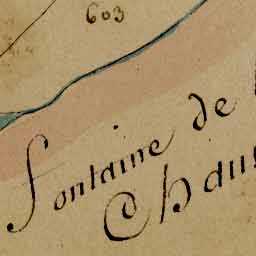 603
Fontaine de
Chau